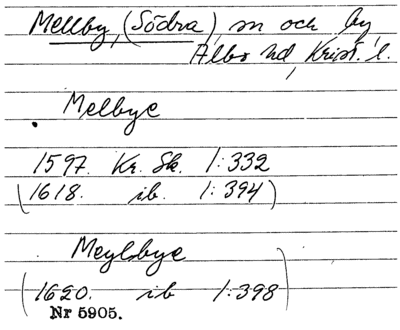 Mellby, (Södra), sn och by,
Albo hd, Krist. l.
Melbye
1597. Kr. Sk. 1:332
(1618. ib. 1:394)
Meylbye
(1620. ib 1:398)
Nr 5905.